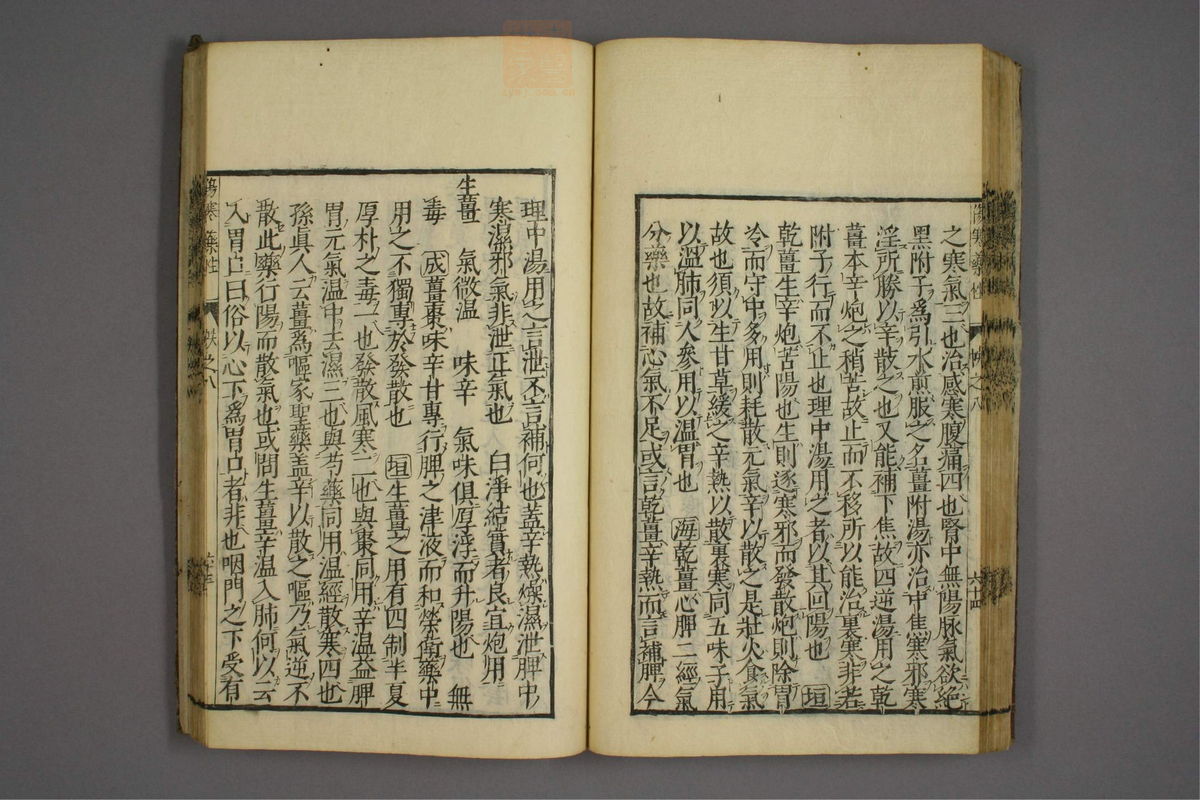 之寒氣三也治感寒腹痛四也腎中無陽脉氣欲絕
黑附子爲引水煎服之名薑附湯亦治中焦寒邪寒
淫所勝以辛散之也又能補下焦故四逆湯用之乾
薑本辛炮之稍苦故止而不移所以能治裏寒非若
附子行而不止也理中湯用之者以其回陽也 垣
乾薑生辛炮苦陽也生則逐寒邪而發散炮則除胃
冷而守中多用則耗散元氣辛以散之是壯火食氣
故也須以生甘草緩之辛熱以散裏寒同五味子用
以溫肺同人參用以溫胃也 海乾薑心脾二經氣
分藥也故補心氣不足或言乾薑辛熱而言補脾今
傷寒藥性 帙之八 六十四
理中湯用之言泄不言補何也蓋辛熱燥濕泄脾中
寒濕邪氣非泄正氣也 白淨結實者良宜炮用
生薑 氣微溫 味辛 氣味俱厚浮而升陽也 無
毒 成薑棗味辛甘專行脾之津液而和榮衛藥中
用之不獨專於發散也 垣生薑之用有四制半夏
厚朴之毒一也發散風寒二也與棗同用辛溫益脾
胃元氣溫中去濕三也與芍藥同用溫經散寒四也
孫眞人云薑爲嘔家聖藥盖辛以散之嘔乃氣逆不
散此藥行陽而散氣也或問生薑辛溫入肺何以云
入胃口曰俗以心下爲胃口者非也咽門之下受有
傷寒藥性 帙之八